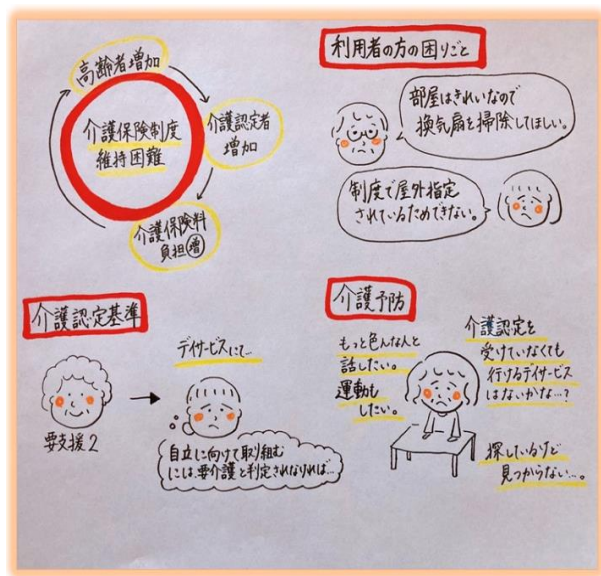 高齢者増加
介護保険制度
維持困難
介護認定者
増加
介護保険料
負担増
利用者の方の困りごと
部屋はきれいなので
換気扇を掃除してほしい。
制度で屋外指定
されているためできない。
介護認定基準
デイサービスにて…
要支援2
自立に向けて取り組む
には、要介護と判定されなければ…
介護予防
もっと色んな人と
話したい。
運動も
したい。
介護認定を
受けていなくても
行けるデイサービス
はないかな…?
探しているけど
見つからない…。